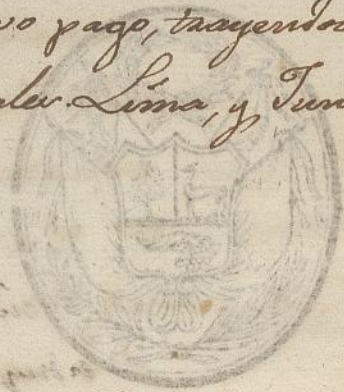 vo pago, trayendo
Lima, y Jun